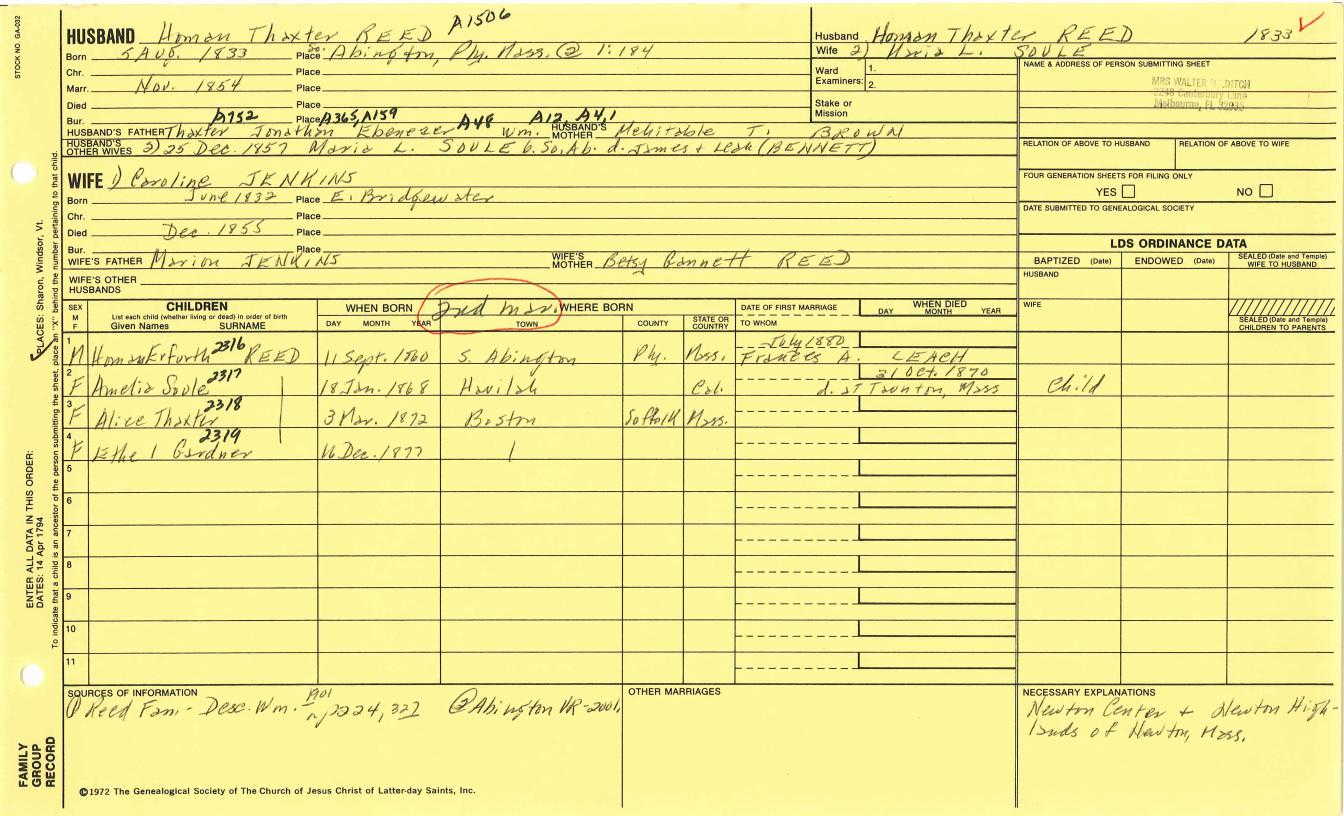 STOCK NO GA-032
HUSBAND Homan Thaxter REED A1506
Born 5 Aug. 1833 Place So. Abington, Ply. Mass. @ 1:184
Chr. Place
Marr. Nov. 1854 Place
Died Place
Bur. A752 Place A365, A159 A48 A12, A4,1
HUSBAND'S FATHER Thaxter Jonathan Ebenezer Wm. HUSBAND'S MOTHER Mehitable T. BROWN
HUSBAND'S OTHER WIVES 2) 25 Dec. 1857 Maria L. SOULE b. So. Ab. d. James + Leah (BENNETT)
WIFE 1) Caroline JENKINS
Born June 1832 Place E. Bridgewater
Chr. Place
Died Dec. 1855 Place
Bur. Place
WIFE'S FATHER Marion JENKINS WIFE'S MOTHER Betsy Bannett REED
WIFE'S OTHER HUSBANDS
Husband Homan Thaxter REED 1833 ✓
Wife 2) Maria L. SOULE
Ward Examiners: 1.
2.
Stake or Mission
NAME & ADDRESS OF PERSON SUBMITTING SHEET
MRS WALTER DITCH
2248 Canterbury Lane
Melbourne, FL 32935
RELATION OF ABOVE TO HUSBAND RELATION OF ABOVE TO WIFE
FOUR GENERATION SHEETS FOR FILING ONLY
YES NO
DATE SUBMITTED TO GENEALOGICAL SOCIETY
LDS ORDINANCE DATA
BAPTIZED (Date) ENDOWED (Date) SEALED (Date and Temple) WIFE TO HUSBAND
HUSBAND
WIFE
SEALED (Date and Temple) CHILDREN TO PARENTS
SEX M F CHILDREN List each child (whether living or dead) in order of birth Given Names SURNAME WHEN BORN DAY MONTH YEAR 2nd mar. WHERE BORN TOWN COUNTY STATE OR COUNTRY DATE OF FIRST MARRIAGE TO WHOM WHEN DIED DAY MONTH YEAR
1 M Homan Erfurth 2316 REED 11 Sept. 1860 S. Abington Ply. Mass. July 1880 Frances A. LEACH
2 F Amelia Soule 2317 18 Jan. 1868 Havilah Cal. 21 Oct. 1870 d. at Taunton, Mass Child
3 F Alice Thaxter 2318 3 Mar. 1872 Boston Suffolk Mass.
4 F Ethel Gardner 2319 16 Dec. 1877
5
6
7
8
9
10
11
SOURCES OF INFORMATION
① Reed Fam.- Desc. Wm. 1901 p, 2224, 327 @ Abington VR-2001,
OTHER MARRIAGES
NECESSARY EXPLANATIONS
Newton Center + Newton High-
lands of Newton, Mass.
©1972 The Genealogical Society of The Church of Jesus Christ of Latter-day Saints, Inc.
FAMILY GROUP RECORD
ENTER ALL DATA IN THIS ORDER:
DATES: 14 Apr 1794 PLACES: Sharon, Windsor, Vt.
To indicate that a child is an ancestor of the person submitting the sheet, place an "X" behind the number pertaining to that child.